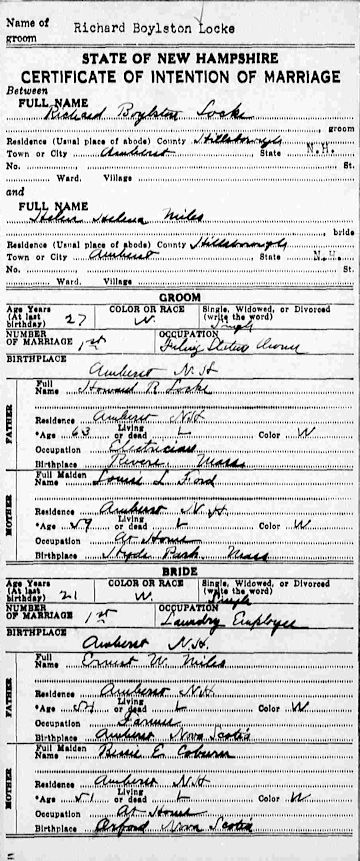 Name of groom Richard Boylston Locke
STATE OF NEW HAMPSHIRE
CERTIFICATE OF INTENTION OF MARRIAGE
Between
FULL NAME
Richard Boylston Locke, groom
Residence (Usual place of abode) County Hillsborough
Town or City Amherst State N.H.
No. St.
Ward. Village
and
FULL NAME
Helen Miles, bride
Residence (Usual place of abode) County Hillsborough
Town or City Amherst State N.H.
No. St.
Ward. Village
GROOM
Age Years (At last birthday) 27 COLOR OR RACE W. Single, Widowed, or Divorced (write the word) Single
NUMBER OF MARRIAGE 1st OCCUPATION Filling Station Owner
BIRTHPLACE
Amherst N.H
FATHER
Full Name Howard R Locke
Residence Amherst N.H
*Age 63 Living or dead L Color W
Occupation Electrician
Birthplace Revere, Mass
MOTHER
Full Maiden Name Louise L Ford
Residence Amherst N.H.
*Age 59 Living or dead L Color W
Occupation At Home
Birthplace Hyde Park Mass
BRIDE
Age Years (At last birthday) 21 COLOR OR RACE W. Single, Widowed, or Divorced (write the word) Single
NUMBER OF MARRIAGE 1st OCCUPATION Laundry Employee
BIRTHPLACE
Amherst N.H.
FATHER
Full Name Ernest W. Miles
Residence Amherst N.H
*Age Living or dead L Color W
Occupation Farmer
Birthplace Amherst Nova Scotia
MOTHER
Full Maiden Name Bessie E Coburn
Residence Amherst N.H
*Age 51 Living or dead L Color W
Occupation At Home
Birthplace Oxford Nova Scotia